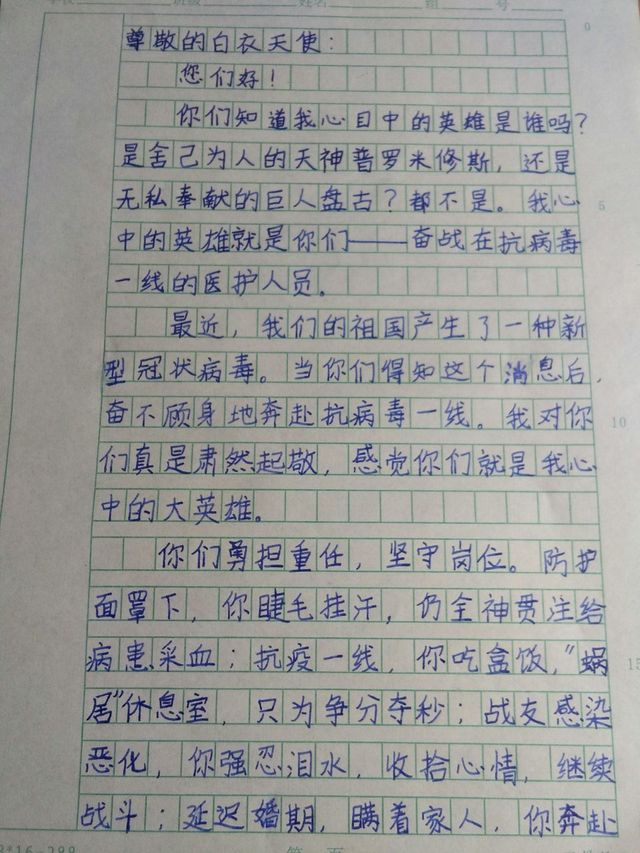 尊敬的白衣天使：
您们好！
你们知道我心目中的英雄是谁吗？
是舍己为人的天神普罗米修斯，还是
无私奉献的巨人盘古？都不是。我心
中的英雄就是你们——奋战在抗病毒
一线的医护人员。
最近，我们的祖国产生了一种新
型冠状病毒。当你们得知这个消息后，
奋不顾身地奔赴抗病毒一线。我对你
们真是肃然起敬，感觉你们就是我心
中的大英雄。
你们勇担重任，坚守岗位。防护
面罩下，你睫毛挂汗，仍全神贯注给
病患采血；抗疫一线，你吃盒饭，“蜗
居”休息室，只为争分夺秒；战友感染
恶化，你强忍泪水，收拾心情，继续
战斗；延迟婚期，瞒着家人，你奔赴
0
5
10
15